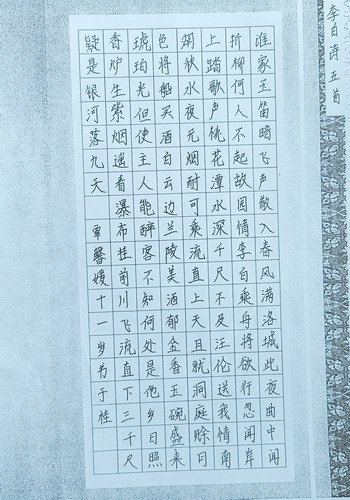 李白诗五首
谁家玉笛暗飞声散入春风满洛城此夜曲中闻
折柳何人不起故园情李白乘舟将欲行忽闻岸
上踏歌声桃花潭水深千尺不及汪伦送我情南
湖秋水夜无烟耐可乘流直上天且就洞庭赊月
色将船买酒白云边兰陵美酒郁金香玉碗盛来
琥珀光但使主人能醉客不知何处是他乡日照
香炉生紫烟遥看瀑布挂前川飞流直下三千尺
疑是银河落九天 覃馨媛十一岁书于桂